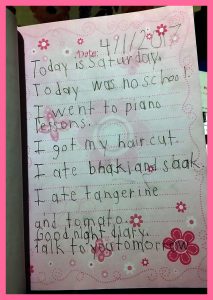 Date: 4/1/201
Today is Saturday,
Today was no school.
I went to piano
lessons.
I got my hair cut.
I ate bhaki and shak.
I ate tangerine
and tomato.
Good night diary.
Talk to you tomorrow